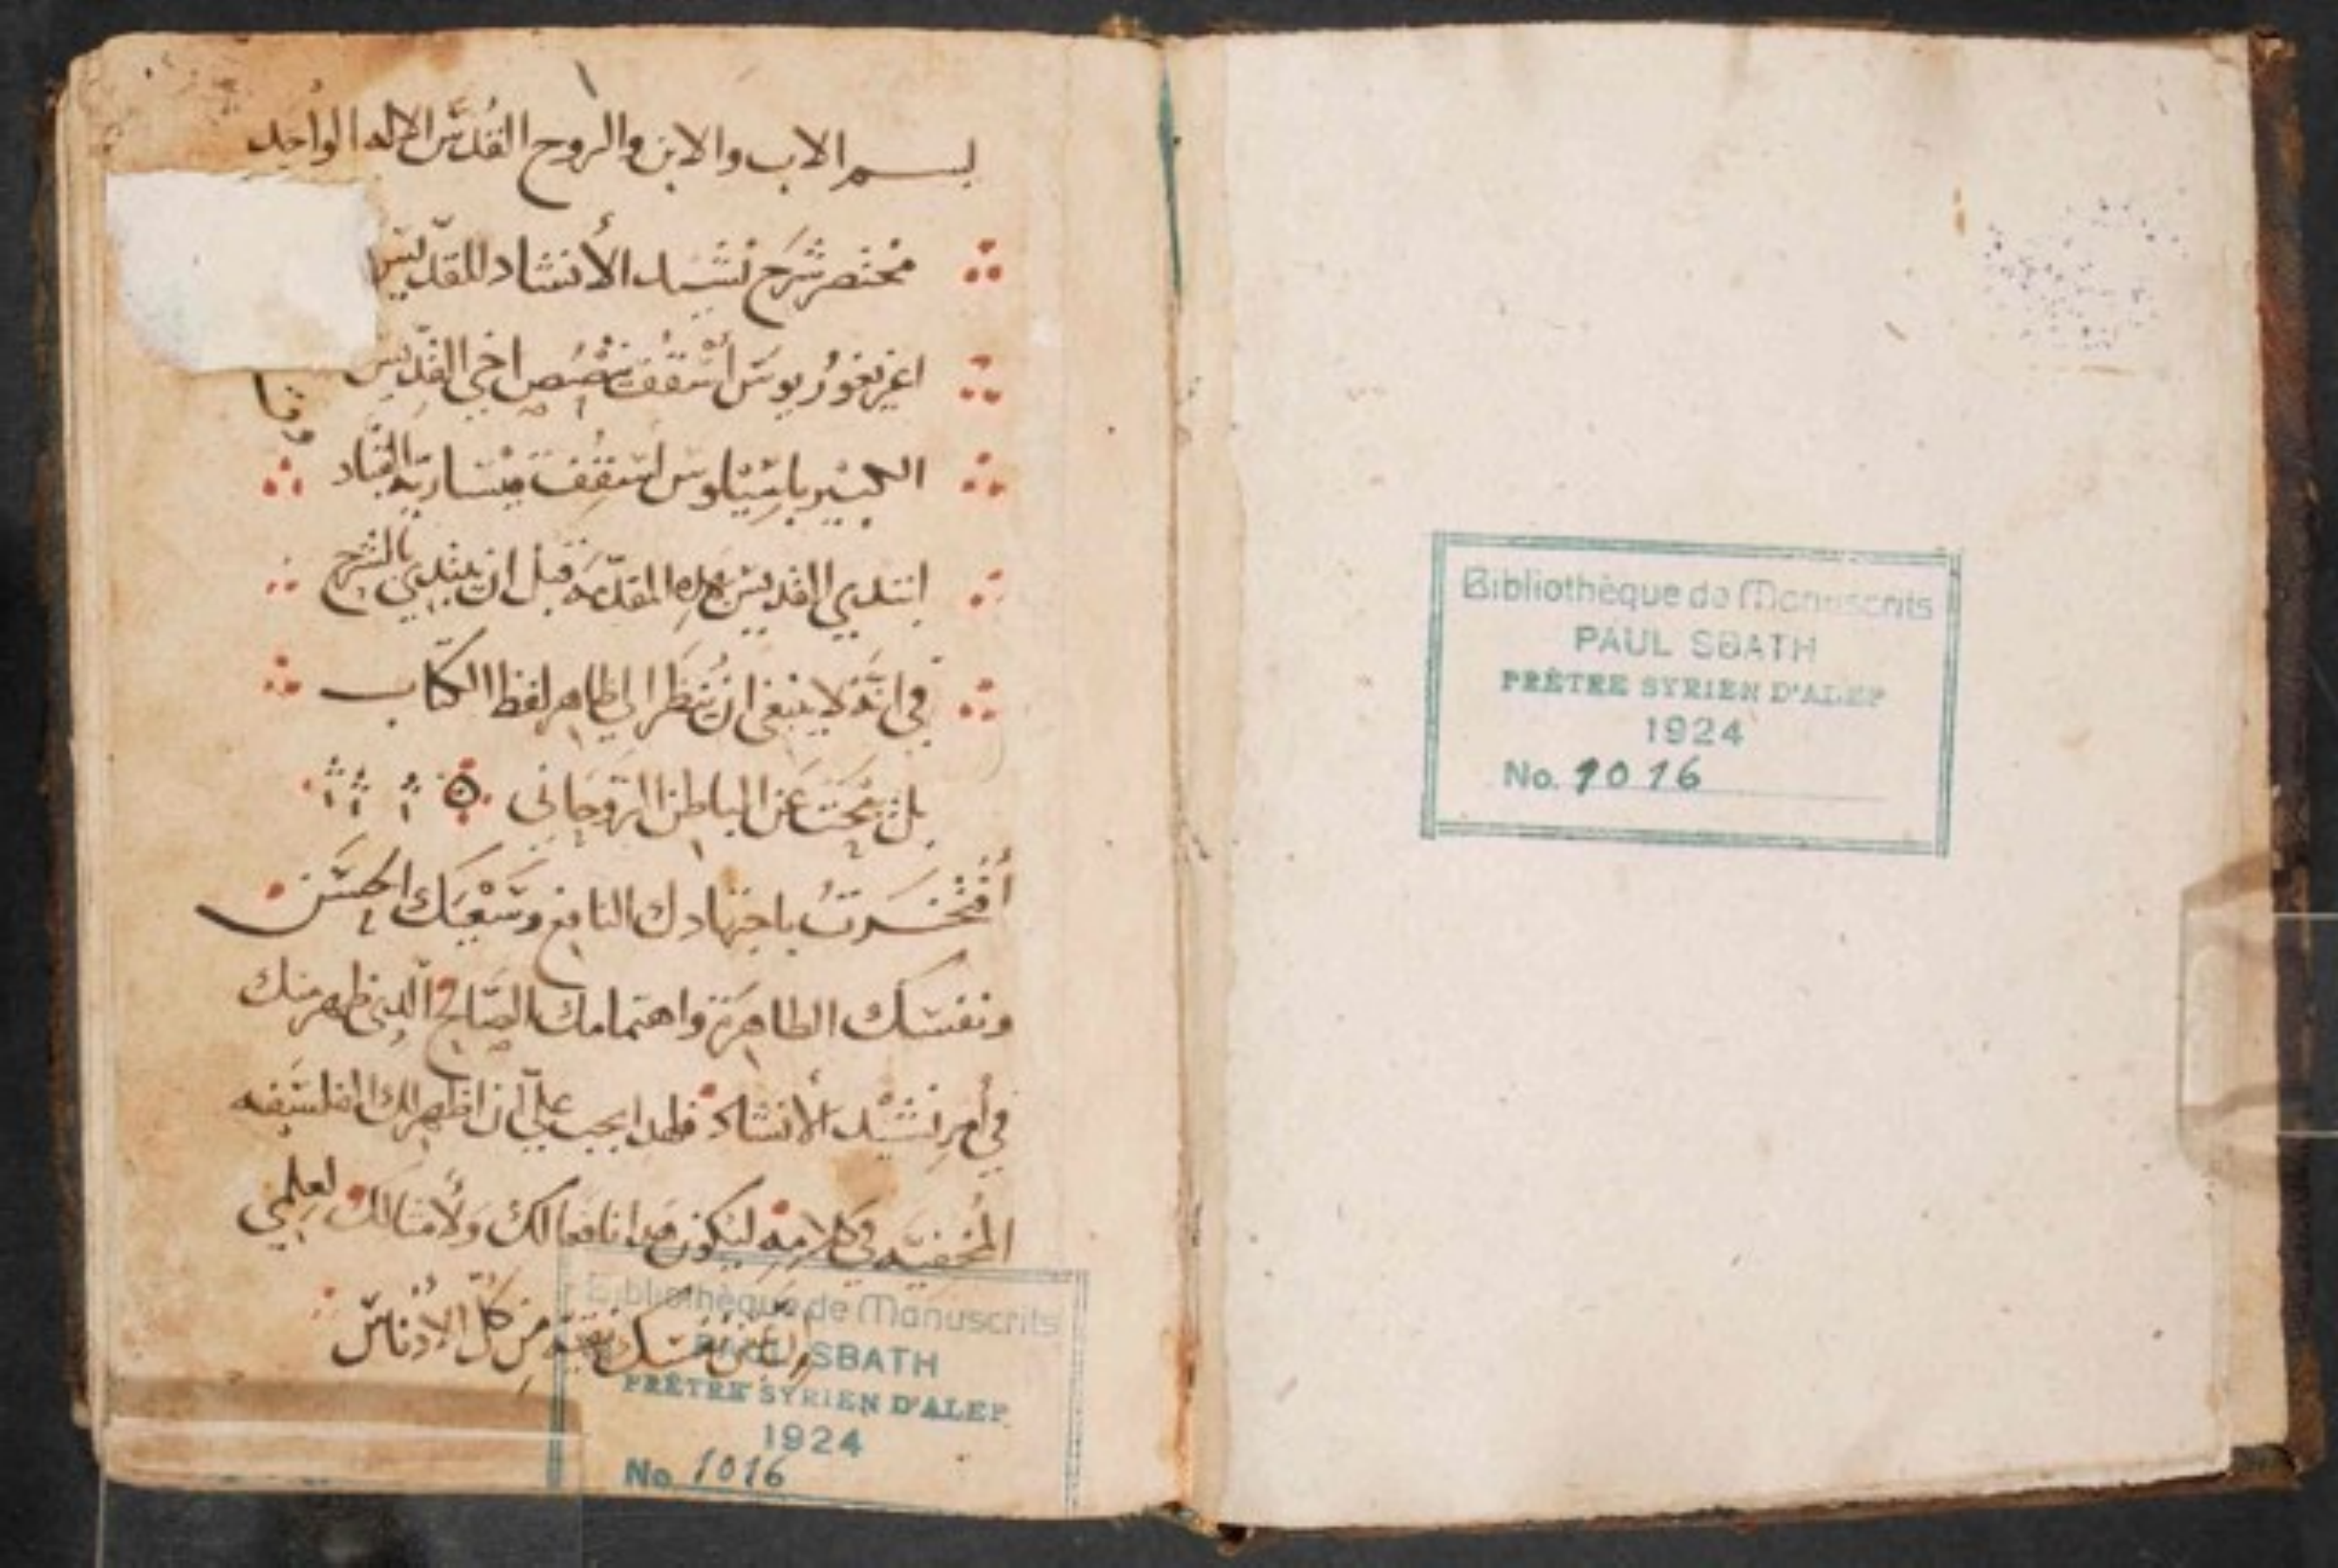 بسم الاب والابن والروح القدس الاله الواحد
مختصر شرح نشيد الأنشاد للقديس
اغريغوريوس أسقف نصص اخي القديس
الكبير باسيليوس اسقف قيسارية
ابتدي القديس بهذه المقدمة قبل ان يبتدي بالشرح
في انه لا ينبغي ان ننظر الي ظاهر لفظ الكتاب
بل نبحث عن الباطن الروحاني
أفتخرت باجتهادك النافع وسعيك الحسن
ونفسك الطاهرة واهتمامك الصالح الذي ظهر منك
في أمر نشيد الأنشاد فلهذا يجب علي أن اظهر لك الفلسفه
المخفيه في كلامه ليكون هذا نافعا لك ولأمثالك لعلمي
نفسك نقيه من كل الادناس
Bibliothèque de Manuscrits
PAUL SBATH
PRÊTRE SYRIEN D'ALEP
1924
No. 1016
Bibliothèque de Manuscrits
PAUL SBATH
PRÊTRE SYRIEN D'ALEP
1924
No. 1016